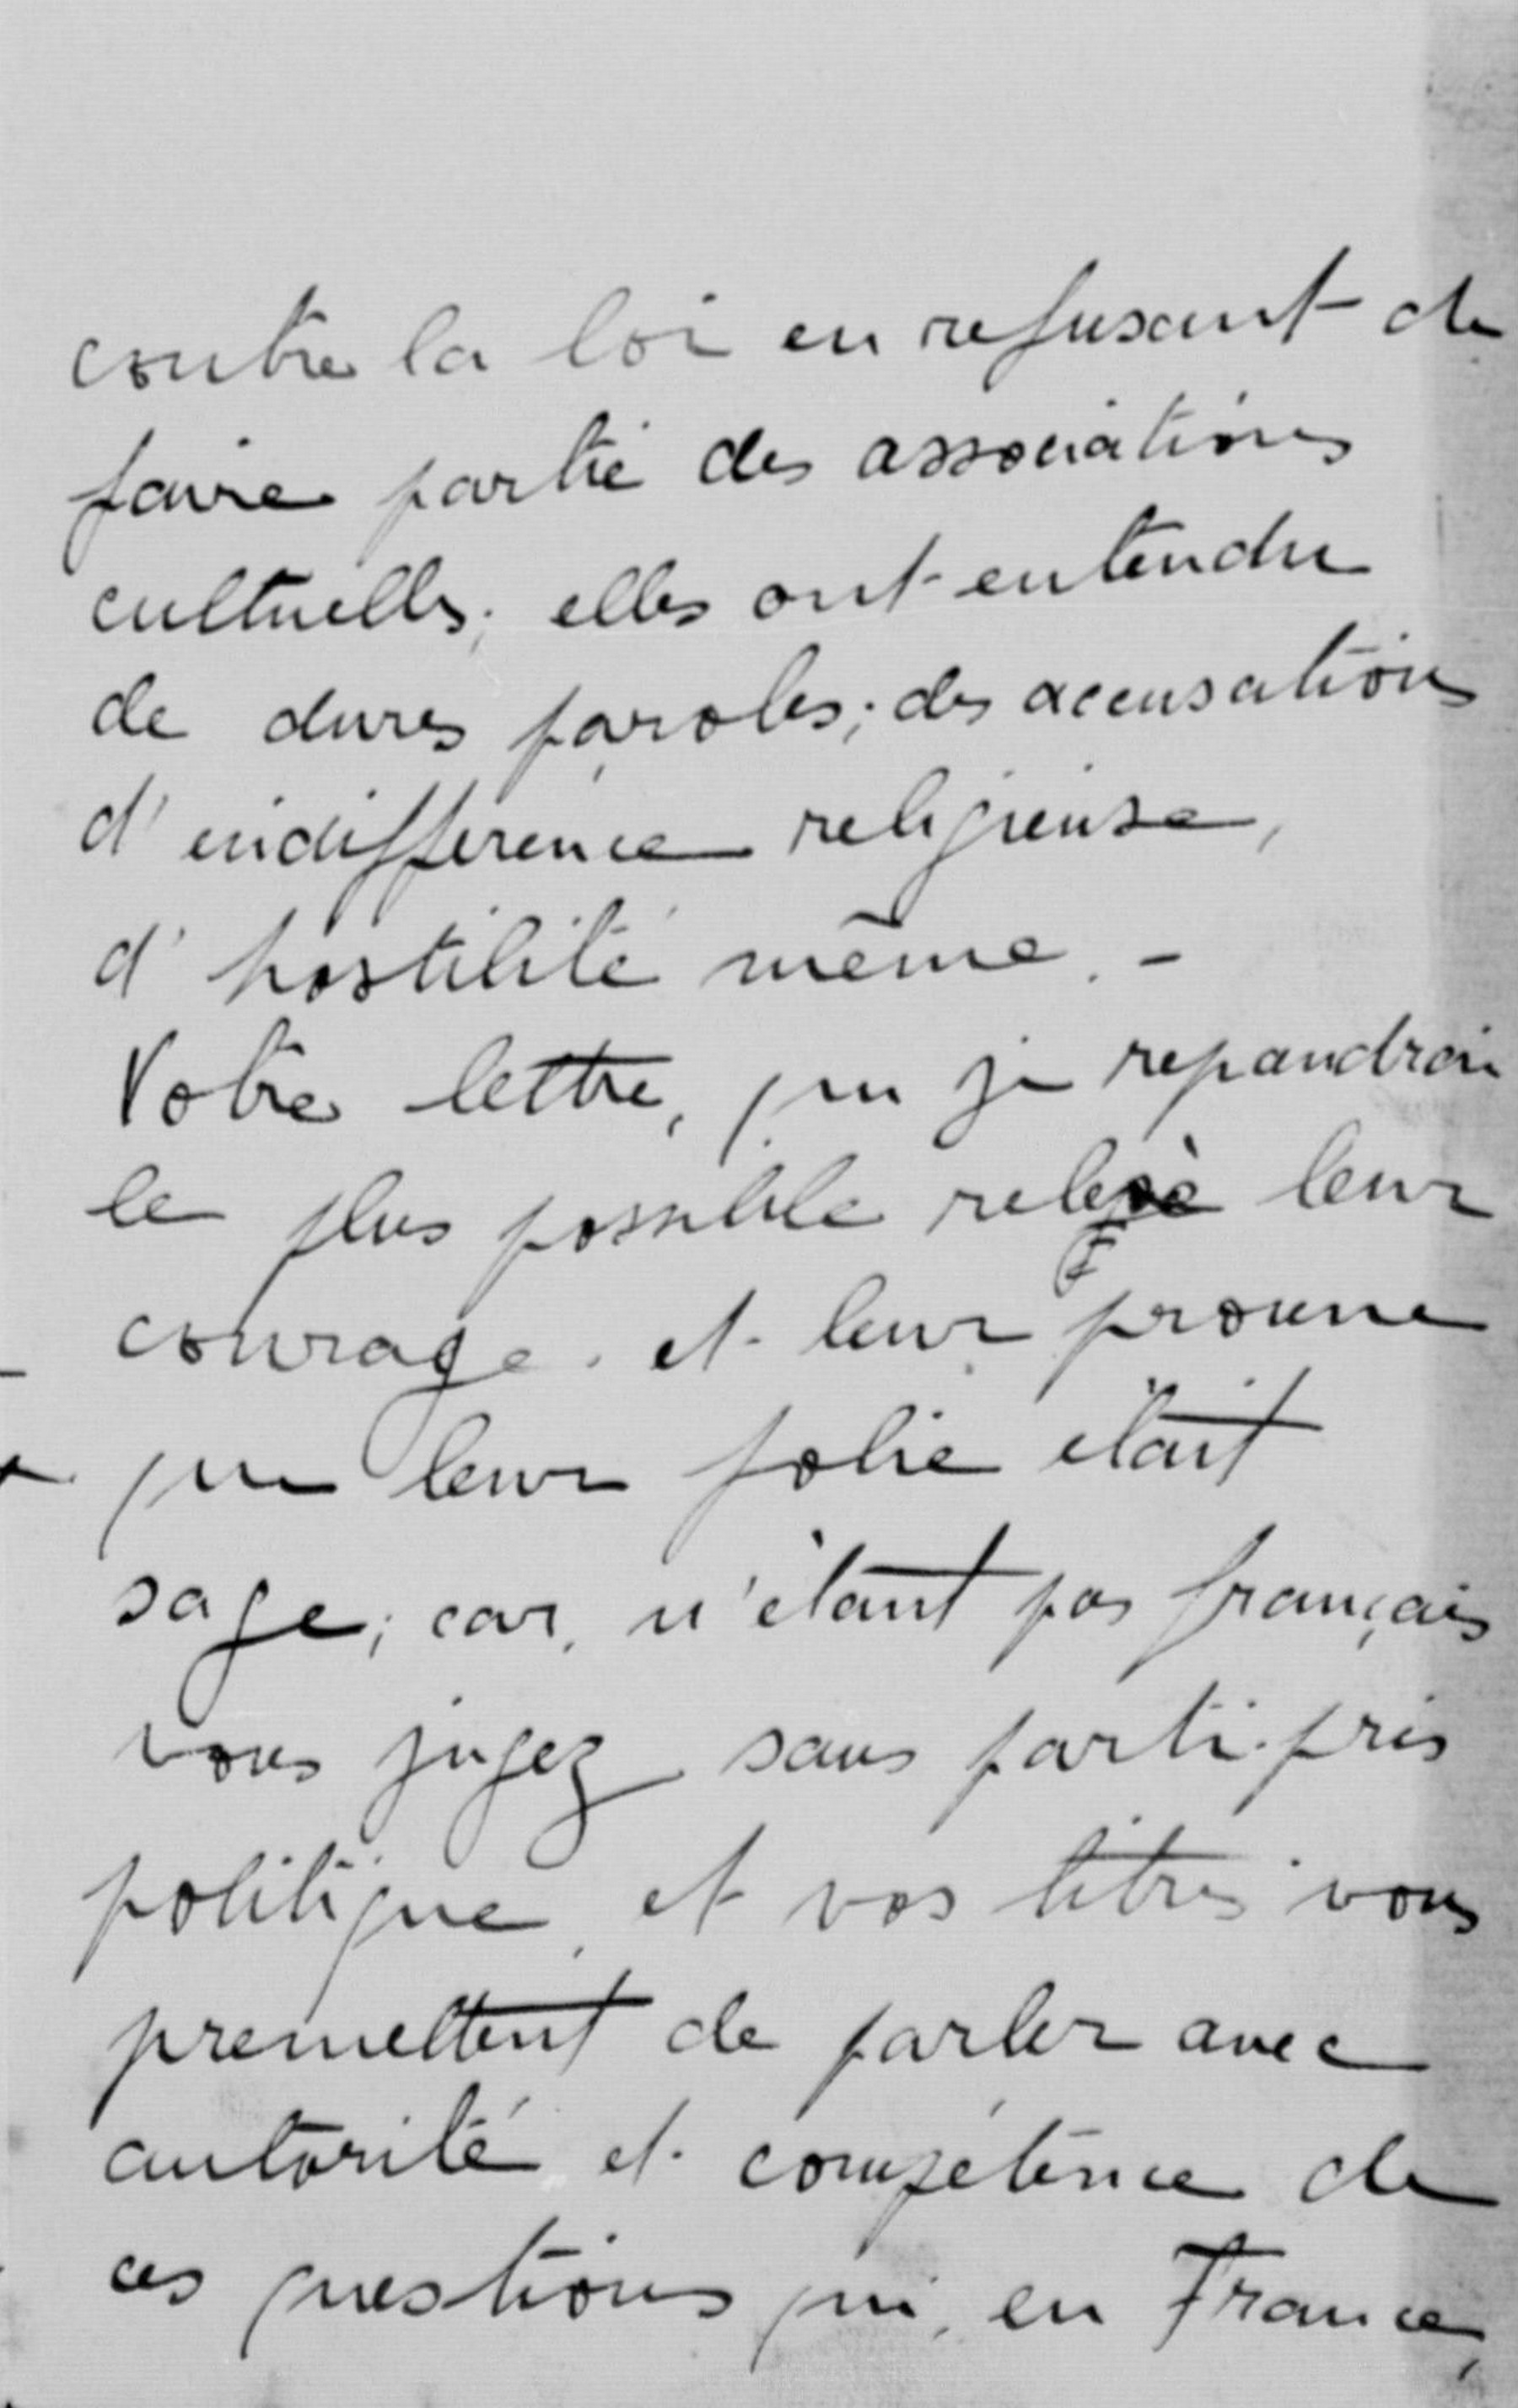 contre la loi en refusant de
faire partie des associations
cultuelles; elles ont entendu
de dures paroles; des accusations
d'indifférence religieuse,
d'hostilité même. -
Votre lettre, que je repandrai
le plus possible relève leur
courage. et leur prouve
que leur folie était
sage; car, n'étant pas français
vous jugez sans parti-pris
politique, et vos titres vous
premettent de parler avec
autorité et compétence de
ces questions qui, en France,